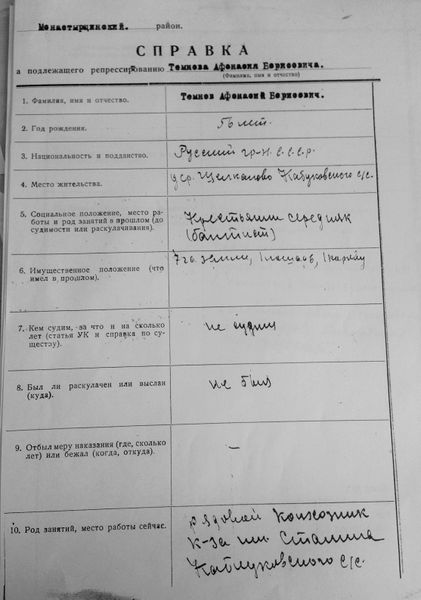 Монастырщинский. район.
СПРАВКА
а подлежащего репрессированию Темнова Афанасия Борисовича.
(Фамилия, имя и отчество)
1. Фамилия, имя и отчество.
Темнов Афанасий Борисович.
2. Год рождения.
56 лет.
3. Национальность и подданство.
Русский гр-н С.С.С.Р.
4. Место жительства.
Щелканово Каблуковского с/с.
5. Социальное положение, место ра-
боты и род занятий в прошлом (до
судимости или раскулачивания).
Крестьянин середняк
(баптист)
6. Имущественное положение (что
имел в прошлом).
7 га земли, 1 лошадь, 1 корову
7. Кем судим, за что и на сколько
лет (статья УК и справка по су-
ществу).
не судим
8. Был ли раскулачен или выслан
(куда).
не был
9. Отбыл меру наказания (где, сколько
лет) или бежал (когда, откуда).
—
10. Род занятий, место работы сейчас.
рядовой колхозник
к-за им Сталина
Каблуковского с/с.